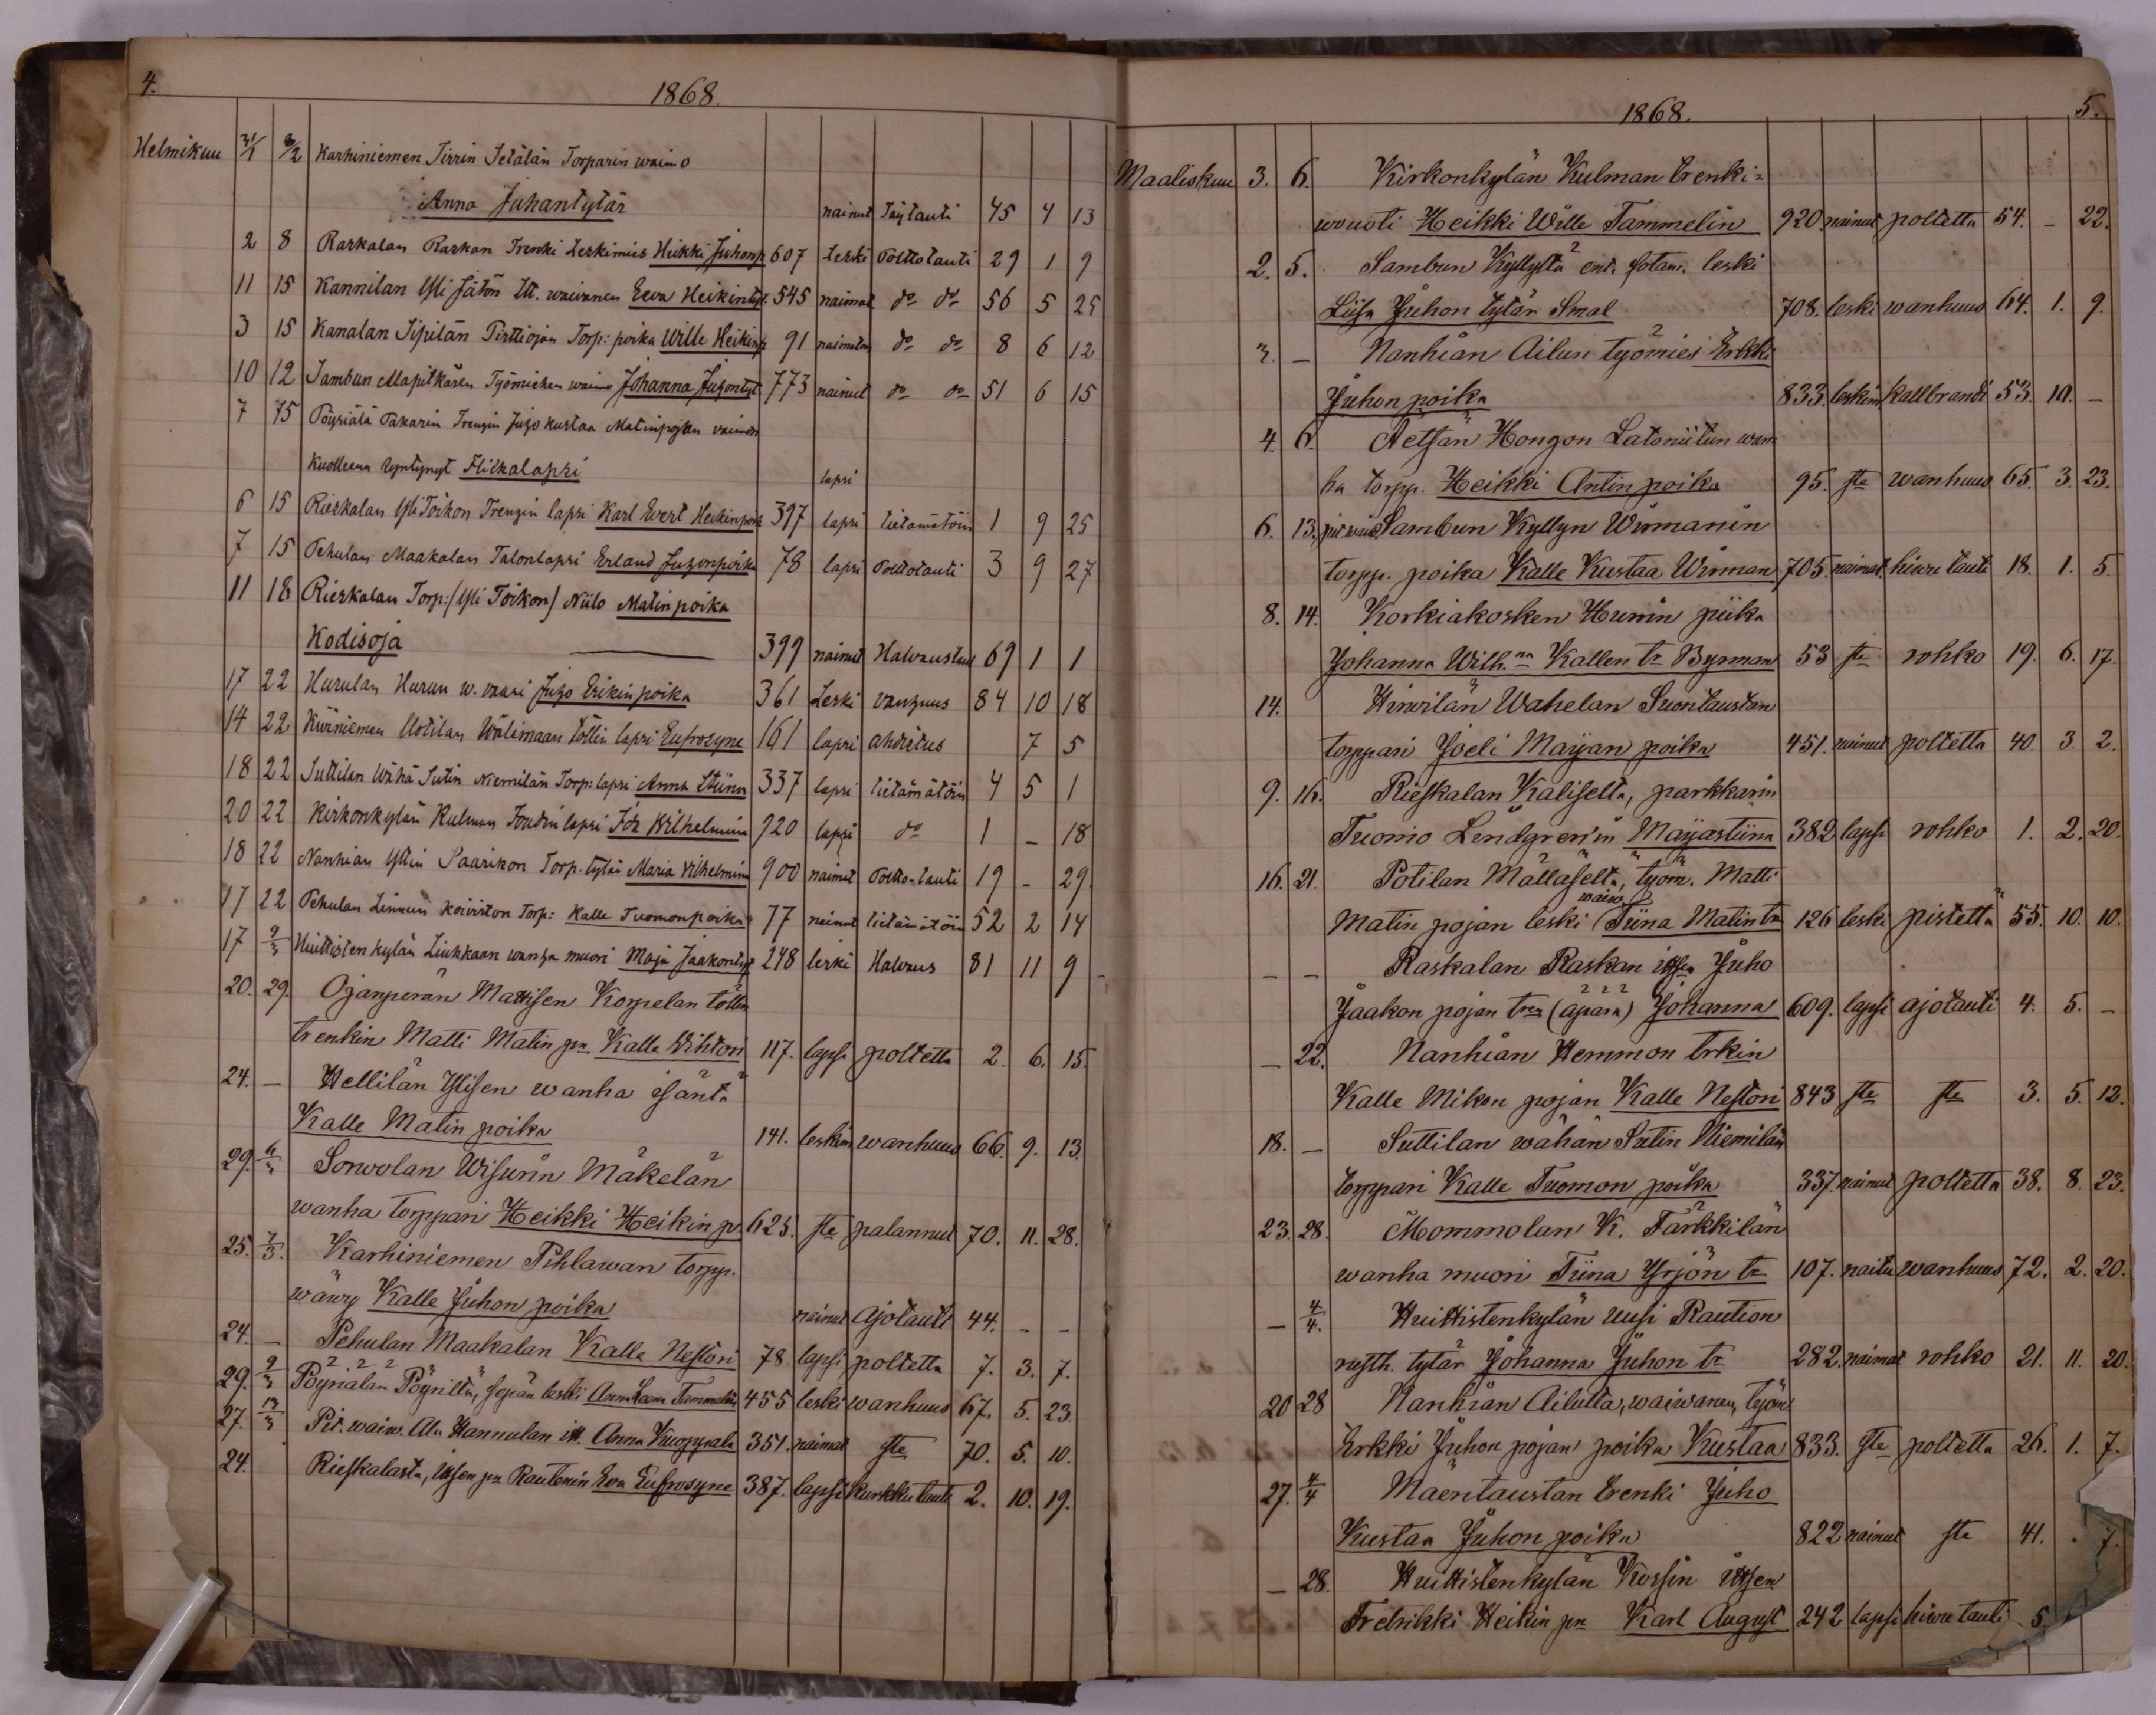 4.
1868.
Helmikuu 31/1 8/2 Karhiniemen Tirrin Jetälän Torparin waimo
Anna Juhantytär nainut Täytauti 45 4 13
2 8 Raskalan Raskan Trenki Leskimies Heikki Juhonp 607 Leski Polttotauti 29 1 9
11 15 Kannilan Yli Jätön Itt. waivanen Eeva Heikintyt. 545 naimat do do 56 5 25
3 15 Kanalan Sipilän Pirttiojan Torp: poika Wille Heikinp 91 naimaton do do 8 6 12
10 12 Sambun Mapitkären Työmiehen waimo Johanna Juhontyt 773 nainut do do 51 6 15
7 15 Pöyriälä Takarin Trengin Juho Kustaa Matinpojan vaimon
Kuolleena Syntynyt Flickalapsi lapsi
6 15 Rieskalan Yli Töikon Trengin lapsi Karl Evert Heikinpoik 397 lapsi tietämätöin 1 9 25
7 15 Pehulan Maakalan Talonlapsi Erland Juhonpoika 78 lapsi Polttotauti 3 9 27
11 18 Rieskalan Torp:/Yli Töikon/ Niilo Matinpoika
Kodisoja 399 nainut Halvaustaut 69 1 1
17 22 Hurulan Hurun w. vaari Juho Erikinpoika 361 Leski vanhuus 84 10 18
14 22 Kiviniemen Uotilan Wälimaan töllin lapsi Eufrosyne 161 lapsi ahdistus 7 5
18 22 Suttilan Wähä Sutin Niemilän Torp: lapsi Anna Stiina 337 lapsi tietämätöin 4 5 1
20 22 Kirkonkylän Kulman Foudin lapsi Ida Wilhelmiin 920 lapsi do 1 - 18
18 22 Nanhian Yllin Saarikon Torp. tytär Maria Vilhelmina 900 naimat Poltto tauti 19 - 29.
17 22 Pehulan Linnun Koiviston Torp: Kalle Tuomonpoika 77 nainut tietämätöin 52 2 14
17 9/3 Huittisten kylän Liukkaan wanha muori Maja Jaakontyt 248 leski Halvaus 81 11 9
20. 29. Ojanperän Mattisen Korpelan töllin
trenkin Matti Matin pn. Kalle Wihtori 117. lapsi poltetta 2. 6. 15.
24. — Hellilän Ylisen wanha isäntä
Kalle Matin poika 141. leskim wanhuus 66. 9. 13.
29. 6/3 Sorwolan Wisurin Mäkelän
wanha torppari Heikki Heikin p. 625. ste palannut 70. 11. 28.
25. 7/3. Karhiniemen Pihlawan torpp.
wäwy Kalle Juhon poika nainut ajotauti 44. - -
24. — Pehulan Maakalan Kalle Nestori 78. lapsi poltetta 7. 3. 7.
29. 9/3 Pöyriälän Pöyriltä, sepän leski Anna Leena Tammelin 455 leski wanhuus 67. 5. 23.
27. 13/3 Pit. waiw. Ala Hannulan itt. Anna Kuoppala 351. naimat ste 70. 5. 10.
24. Rieskalasta, Ittsen pn Rautenin Eva Eufrosyne 387. lapsi kurkkutauti 2. 10. 19.
1868.
5.
Maaliskuu 3. 6. Kirkonkylän Kulman trenki-
wouoti Heikki Wille Tammelin 920. nainut poltetta 54. - 22.
2. 5. Sambun Kyllyltä ent. sotam. leski
Liisa Juhon tytär Smal 708. leski wanhuus 64. 1. 9.
3. — Nanhian Ailun työmies Erkki
Juhon poika 833. leskim kallbrandi 53. 10. -
4. 6. Aetsän Hongon Latoniitun wan
ha torpp. Heikki Antin poika 95. ste wanhuus 65. 3. 23.
6. 13. Sambun Kyllyn Wirmanin
torpp. poika Kalle Kustaa Wirman 705. naimat. hiwu tauti 18. 1. 5.
8. 14. Korkiakosken Hurrin piika
Johanna Wilh.na Kallen tr Byrman 53 ste rohko 19. 6. 17.
14. Hirwilän Wahelan Suontaustan
torppari Joeli Maijan poika 451. nainut poltetta 40. 3. 2.
9. 16. Rieskalan Kaliselta, parkkarin
Tuomo Lendgrenin Maijastiina 382 lapsi rohko 1. 2. 20.
16. 21. Potilan Mällaselta, työm. Matti
waiw.
Matin pojan leski Tiina Matin tr 126 leski pistettä 55. 10. 10.
— — Raskalan Raskan ittsen Juho
Jaakon pojan trn (äpärä) Johanna 609. lapsi ajotauti 4. 5. -
— 22. Nanhian Hemmon trkin
Kalle Mikon pojan Kalle Nestori 843 ste ste 3. 5. 12.
18. — Suttilan wähän Sutin Niemilän
torppari Kalle Tuomon poika 337. nainut poltetta 38. 8. 23.
23. 28. Mommolan K. Tärkkilän
wanha muori Tiina Yrjön tr 107. naitu wanhuus 72. 2. 20.
— 4/4. Huittistenkylän uusi Raution
rusth. tytär Johanna Juhon tr 282. naimat rohko 21. 11. 20.
20 28 Nanhian Ailulta, waiwanen, työm
Erkki Juhon pojan poika Kustaa 833. ste poltetta 26. 1. 7.
27. 4/4 Mäentaustan trenki Juho
Kustaa Juhon poika 822 nainut ste 41. . 7.
— 28. Huittistenkylän Korsin ittsen
Fredrikki Heikin pn Karl August 242 lapsi hiwutauti 5.